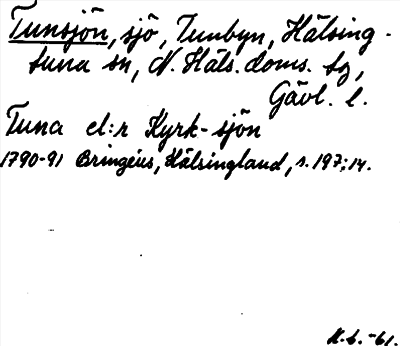 Tunsjön, sjö, Tunbyn, Hälsing-
tuna sn, N. Häls. doms. tg,
Gävl. l.
Tuna el:r Kyrk-sjön
1790-91 Bringéus, Hälsingland, s. 197; 14.
K.L. -61.